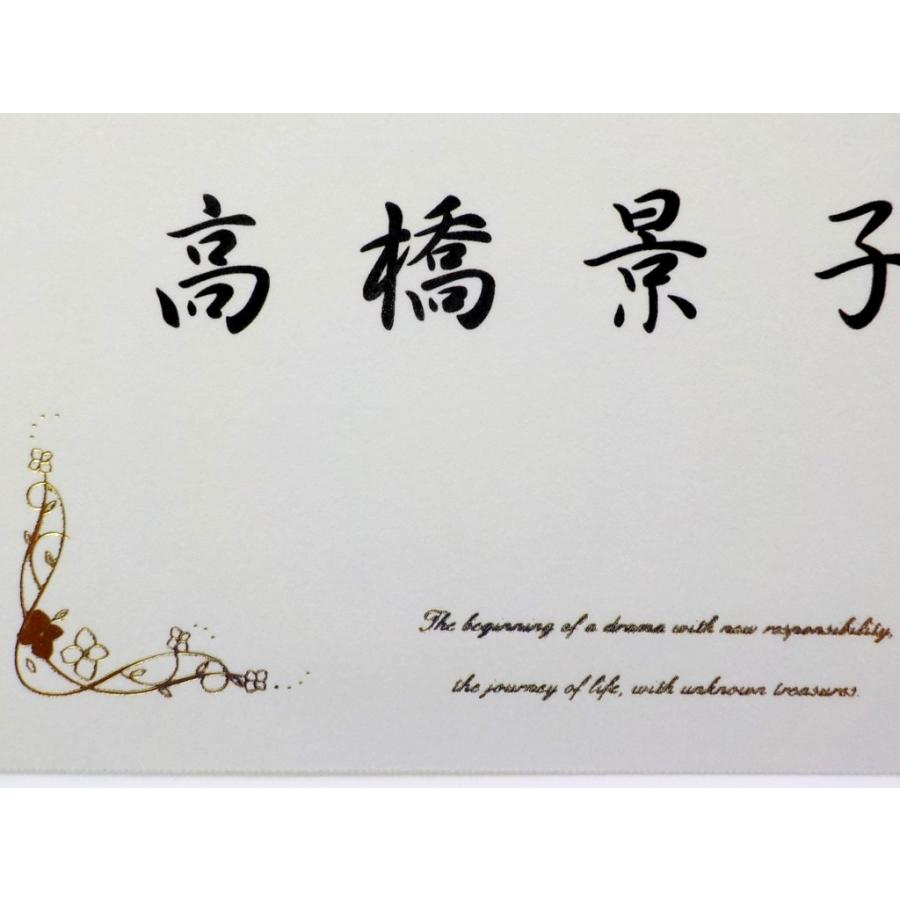 高橋景子
The beginning of a drama with new responsibility,
the journey of life, with unknown treasures.